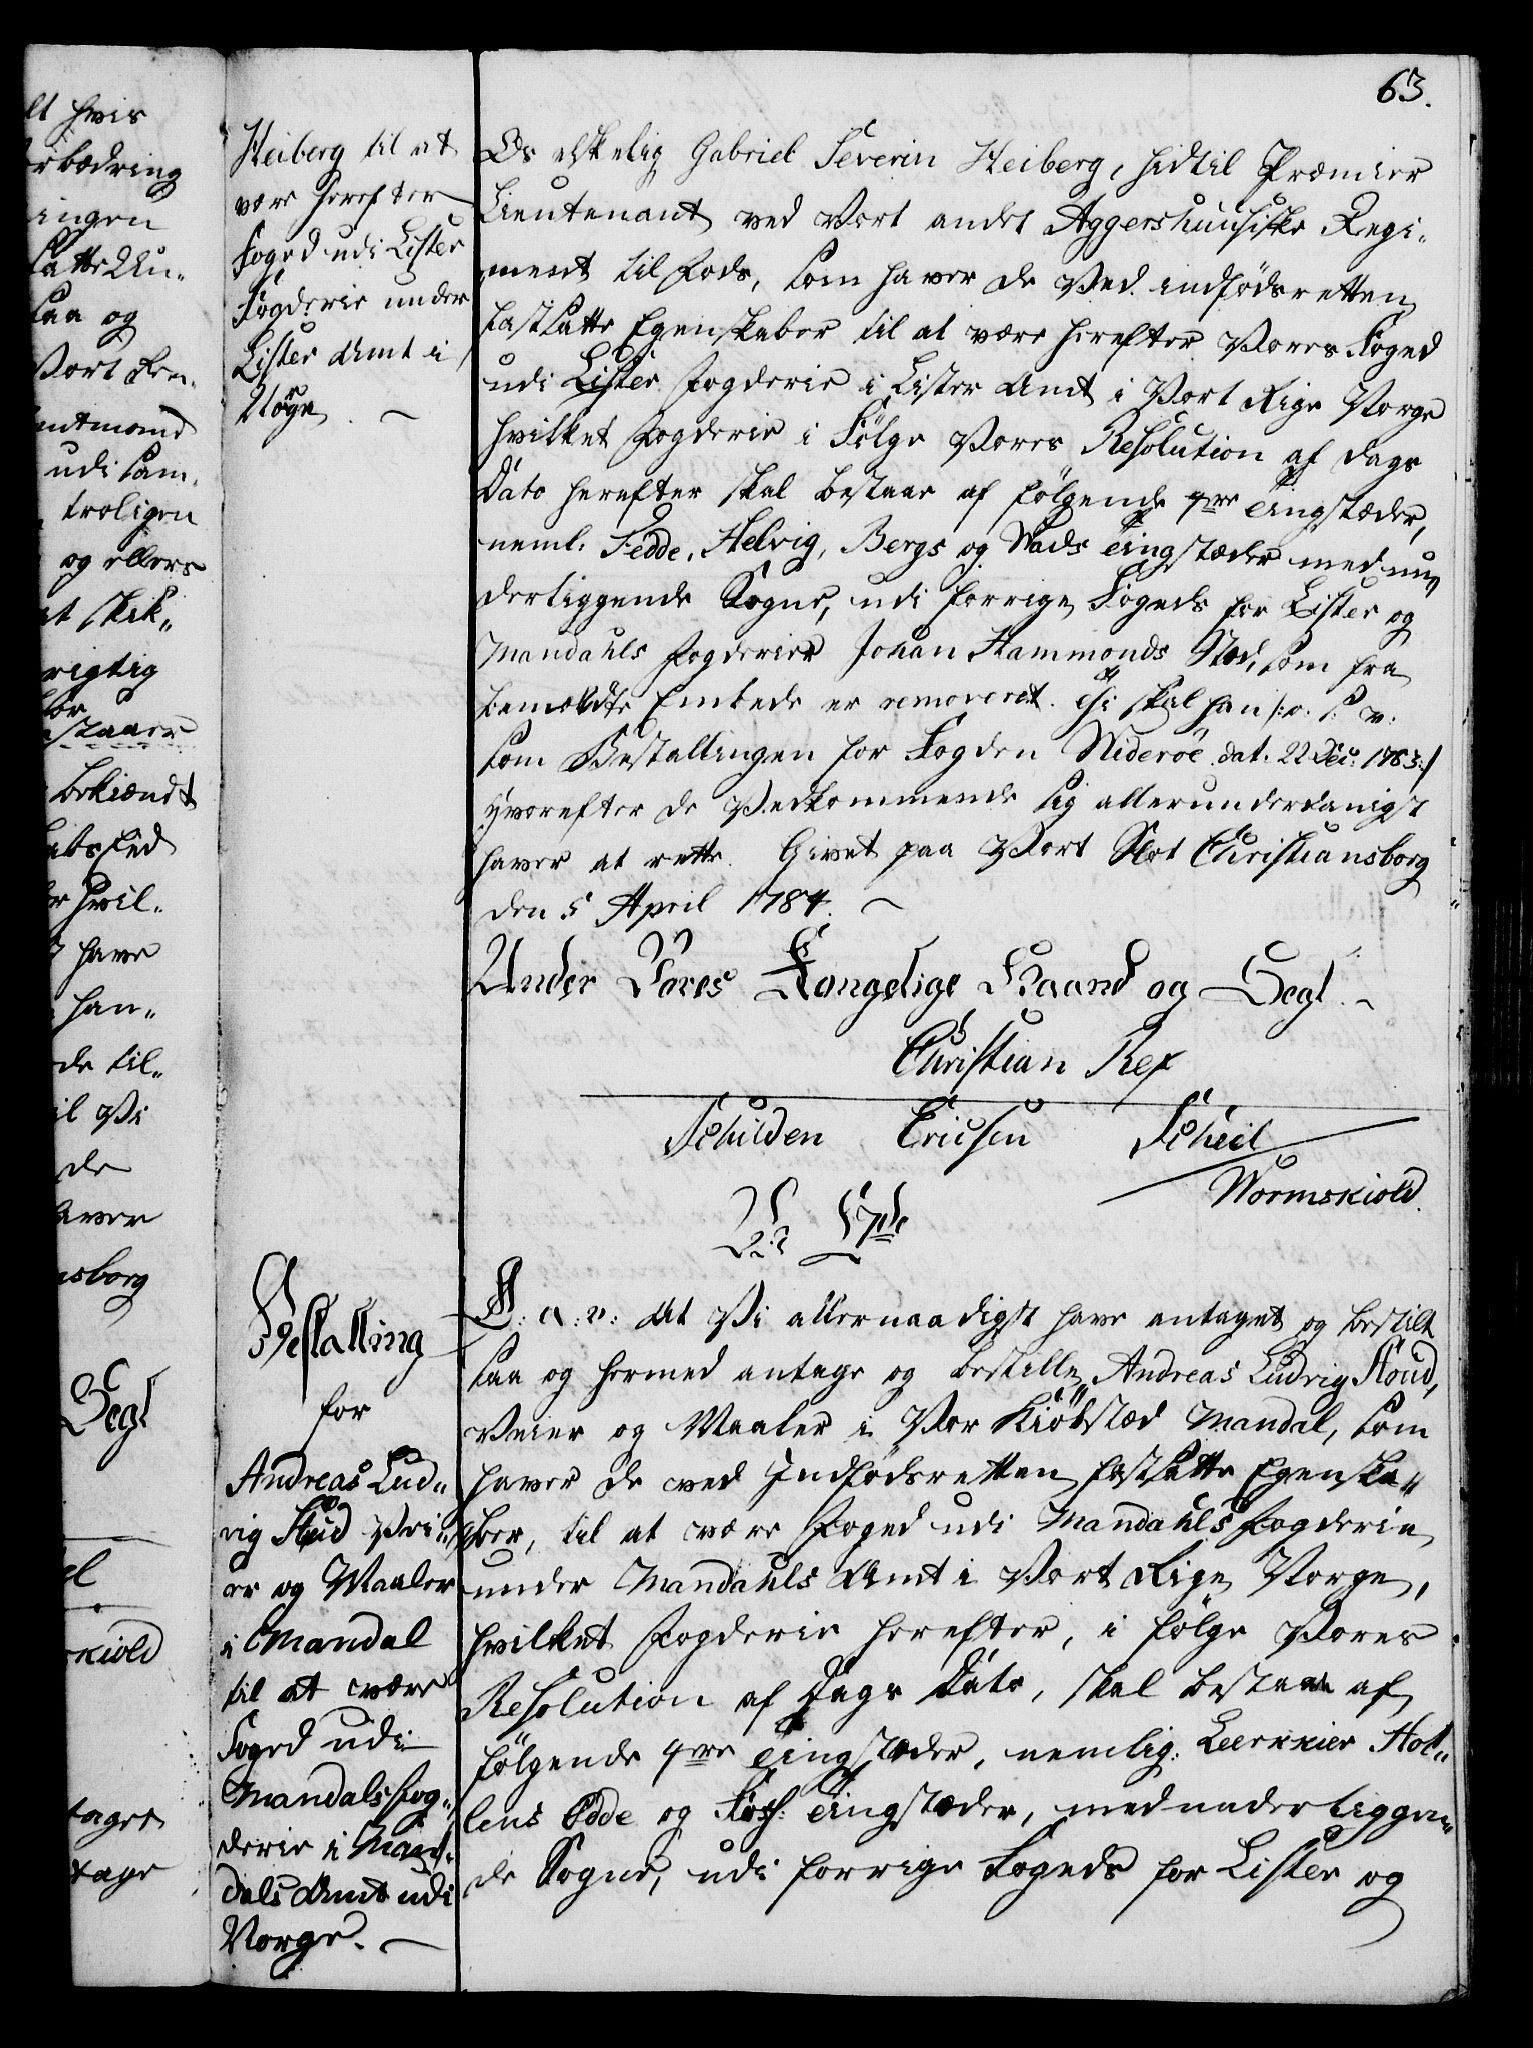 63.
Heiberg til at
være herefter
Foged udi Lister
Fogderie under
Lister Amt i
Norge
Os elskelig Gabriel Severin Heiberg, hidtil Premier
Lieutenant ved Vort andet Aggershuusiske Regi„
ment til Fods, som haver de ved indfødsretten
fastsatte Egenskaber til at være herefter Vores Foged
udi Lister Fogderie i Lister Amt i Vort Rige Norge
hvilket Fogderie i Følge Vores Resolution af Dags
Dato herefter skal bestaae af følgende 4re Tingstæder,
neml: Fedde, Helvig, Bergs og Nads Tingstæder med un„
derliggende Sogne, udi forrige Fogeds for Lister og
Mandahls Fogderier Johan Hammonds Sted, som fra
bemældte Embede er removeret. Thi skal han /: o: s: v:
som Bestallingen for Fogden Niderøe dat: 22 Dec: 1783:/
Hvorefter de Vedkommende sig allerunderdanigst
haver at rette. Givet paa Vort Slot Christiansborg
den 5 April 1784.
Under Vores Kongelige Haand og Segl.
Christian Rex
Schilden Ericsen Scheel
Wormskiold.
Bestalling
for
Andreas Lud„
vig Stud Vei„
er og Maaler
i Mandal
til at være
Foged udi
Mandals Fog„
derie i Man„
dals Amt udi
Norge.
G: A: V: At Vi allernaadigst have antaget og bestilt
saa og hermed antage og bestille Andreas Ludvig Stoud,
Veier og Maaler i Vor Kiöbstæd Mandal, som
haver de ved Indfødsretten fastsatte Egenska„
ber, til at være Foged udi Mandahls Fogderie
under Mandahls Amt i Vort Rige Norge,
hvilket Fogderie herefter, i følge Vores
Resolution af Dags Dato, skal bestaae af
følgende 4re Tingstæder, nemlig: Leerkier Hol„
lens Odde og Foss: Tingstæder, med underliggen„
de Sogne, udi forrige Fogeds for Lister og